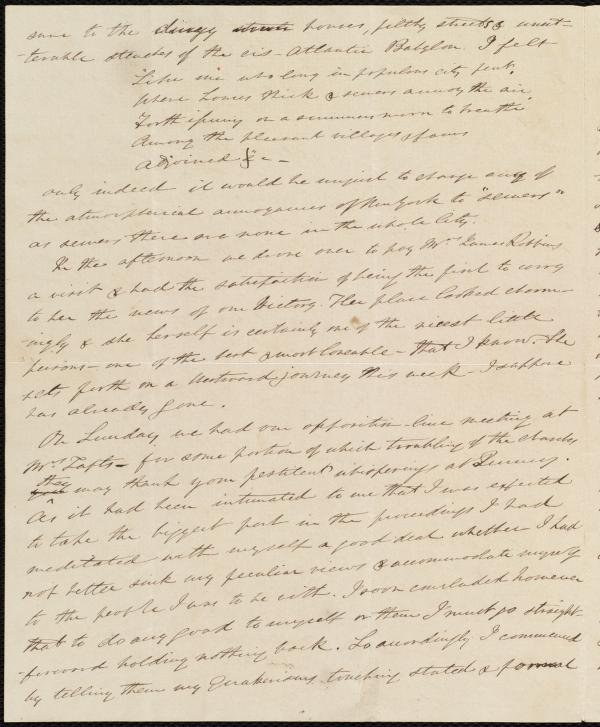 sure to the dingy houses, filthy streets & unut-
-terable stenches of the cis-Atlantic Babylon. I felt
"Like one who long in populous city pent,
Where houses thick & sewers annoy the air,
Forth issuing on a summers morn to breathe
Among the pleasant villages & farms
Adjoined" &c -
only indeed it would be unjust to charge any of
the atmospherical annoyances of New York to "sewers"
as sewers there are none in the whole city.
In the afternoon we drove over to pay Mrs James Robbins
a visit & had the satisfaction of being the first to carry
to her the news of our Victory. Her place looked charm-
-ingly & she herself is certainly one of the nicest little
persons - one of the best & most loveable - that I know. She
sets forth on a Westward journey this week - I suppose
has already gone.
On Sunday we had our opposition-line meeting at
Mrs. Taft's - for some portion of which troubling of the churches
they may thank your pestilent whisperings at Quincy.
As it had been intimated to me that I was expected
to take the biggest part in the proceedings I had
meditated with myself a good deal whether I had
not better sink my peculiar views & accommodate myself
to the people I was to be with. I soon concluded however
that to do any good to myself or them I must go straight-
-forward holding nothing back. So accordingly I commenced
by telling them my Quakerisms touching stated & formal